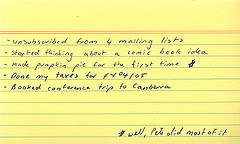 - unsubscribed from 4 mailing lists
- Started thinking about a comic book idea
- made pumpkin pie for the first time *
- Done my taxes for FY04/05
- Booked conference trip to Canberra
* well, Pete did most of it